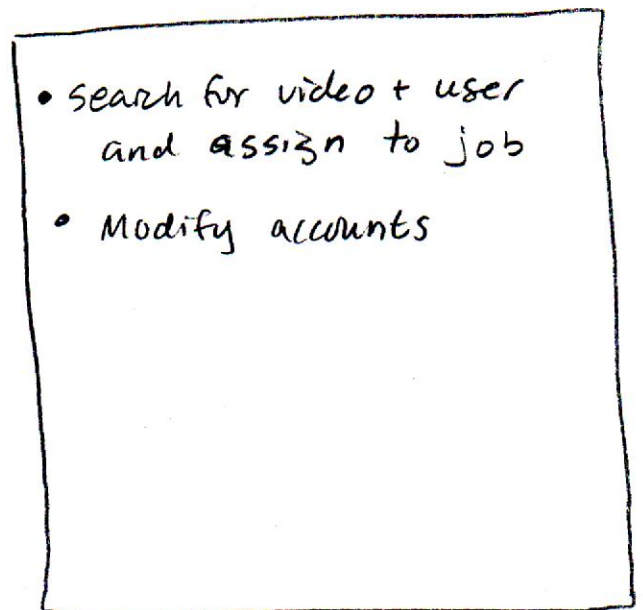 • Search for video + user
and assign to job
• Modify accounts